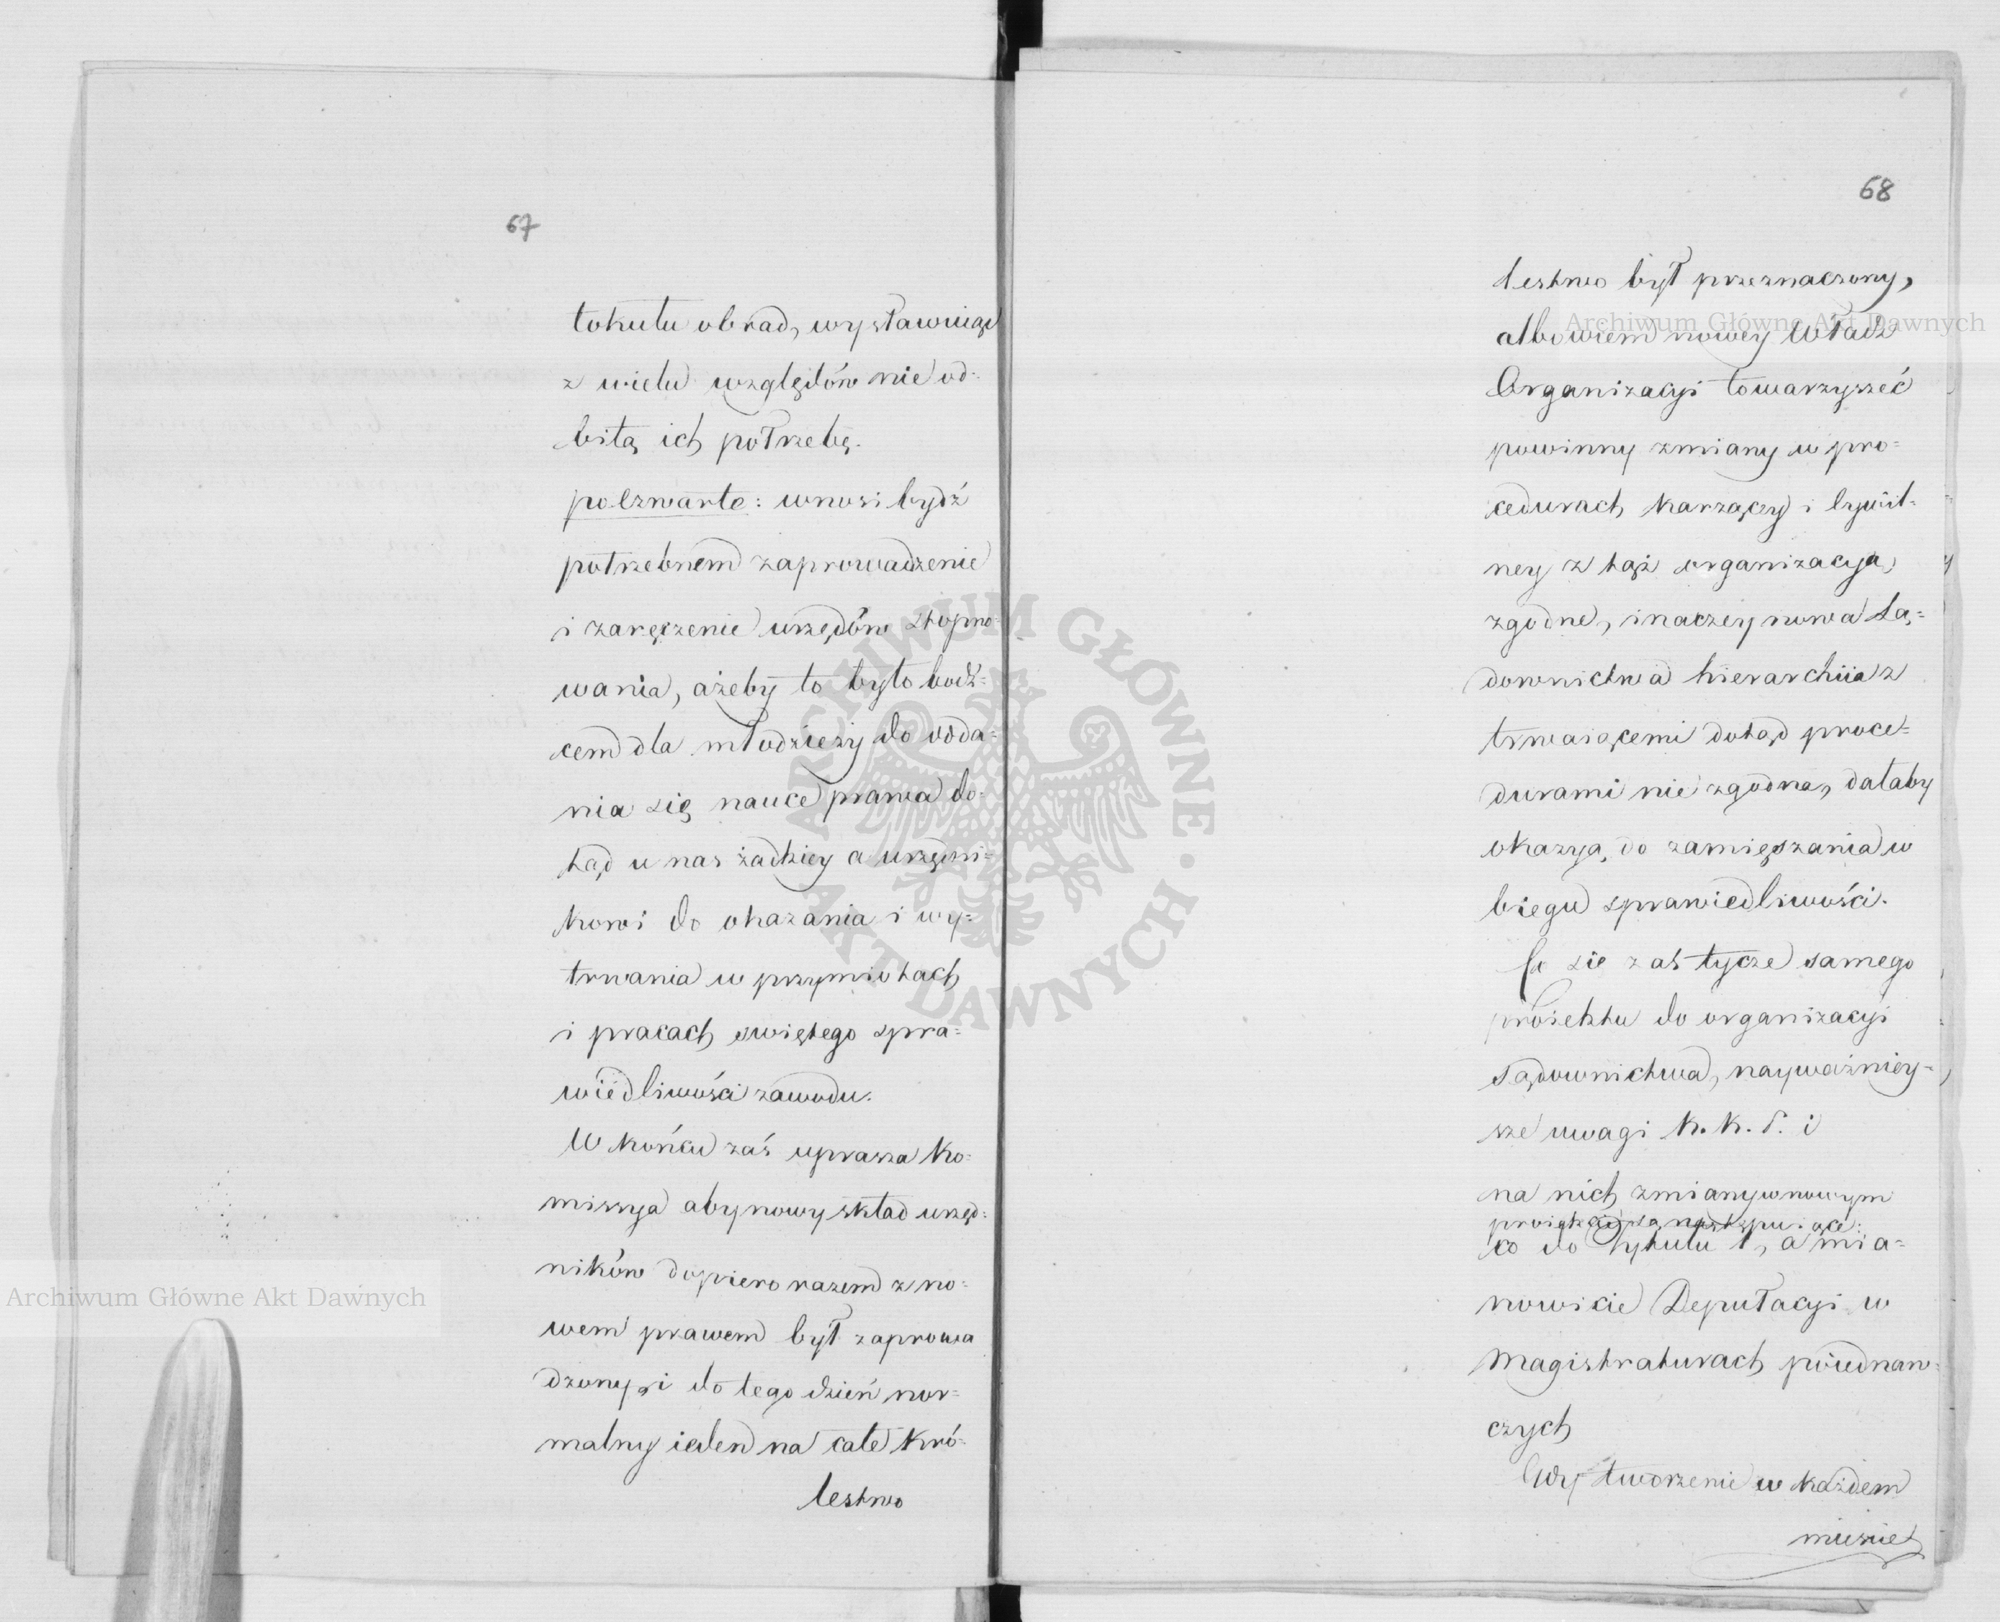 67
tokułu obrad, wystawuiąc
z wielu względów nie od-
bitą ich potrzebę.
poczwarte: wnosi bydź
potrzebnem zaprowadzenie
i zaręczenie urzędów stopnio-
wania, ażeby to było bodź-
cem dla młodzieży do odda-
nia się nauce prawa do-
tąd u nas żadkiey a urzędni-
kowi do okazania i wy-
trwania w przymiotach
i pracach swiętego spra-
wiedliwości zawodu.
W końcu zaś uprasza Ko-
missya aby nowy skład urzęd-
ników dopiero razem z no-
wem prawem był zaprowa
dzony, i do tego dzień nor-
malny ieden na całe Kró-
lestwo
68
lestwo był przeznaczony,
albowiem nowey Władz
Organizacyi towarzyszeć
powinny zmiany w pro-
cedurach karzącey i cywil-
ney z tąż organizacyą
zgodne, inaczey nowa Są-
downictwa hierarchiia z
trwaiącemi dotąd proce-
durami nie zgodna, dałaby
okazyą do zamięszania w
biegu sprawiedliwości.
Co sie zas tycze samego
proiektu do organizacyi
sądownictwa, nayważniey-
sze uwagi K. K. S. i
na nich zmiany w nowym
proiekcie są następuiące:
co do Tytułu 1, a mia-
nowicie Deputacyi w
Magistraturach poiednaw-
czych
Wytworzenie w każdem
miescie
Archiwum Główne Akt Dawnych
Archiwum Główne Akt Dawnych
ARCHIWUM GŁÓWNE AKT DAWNYCH